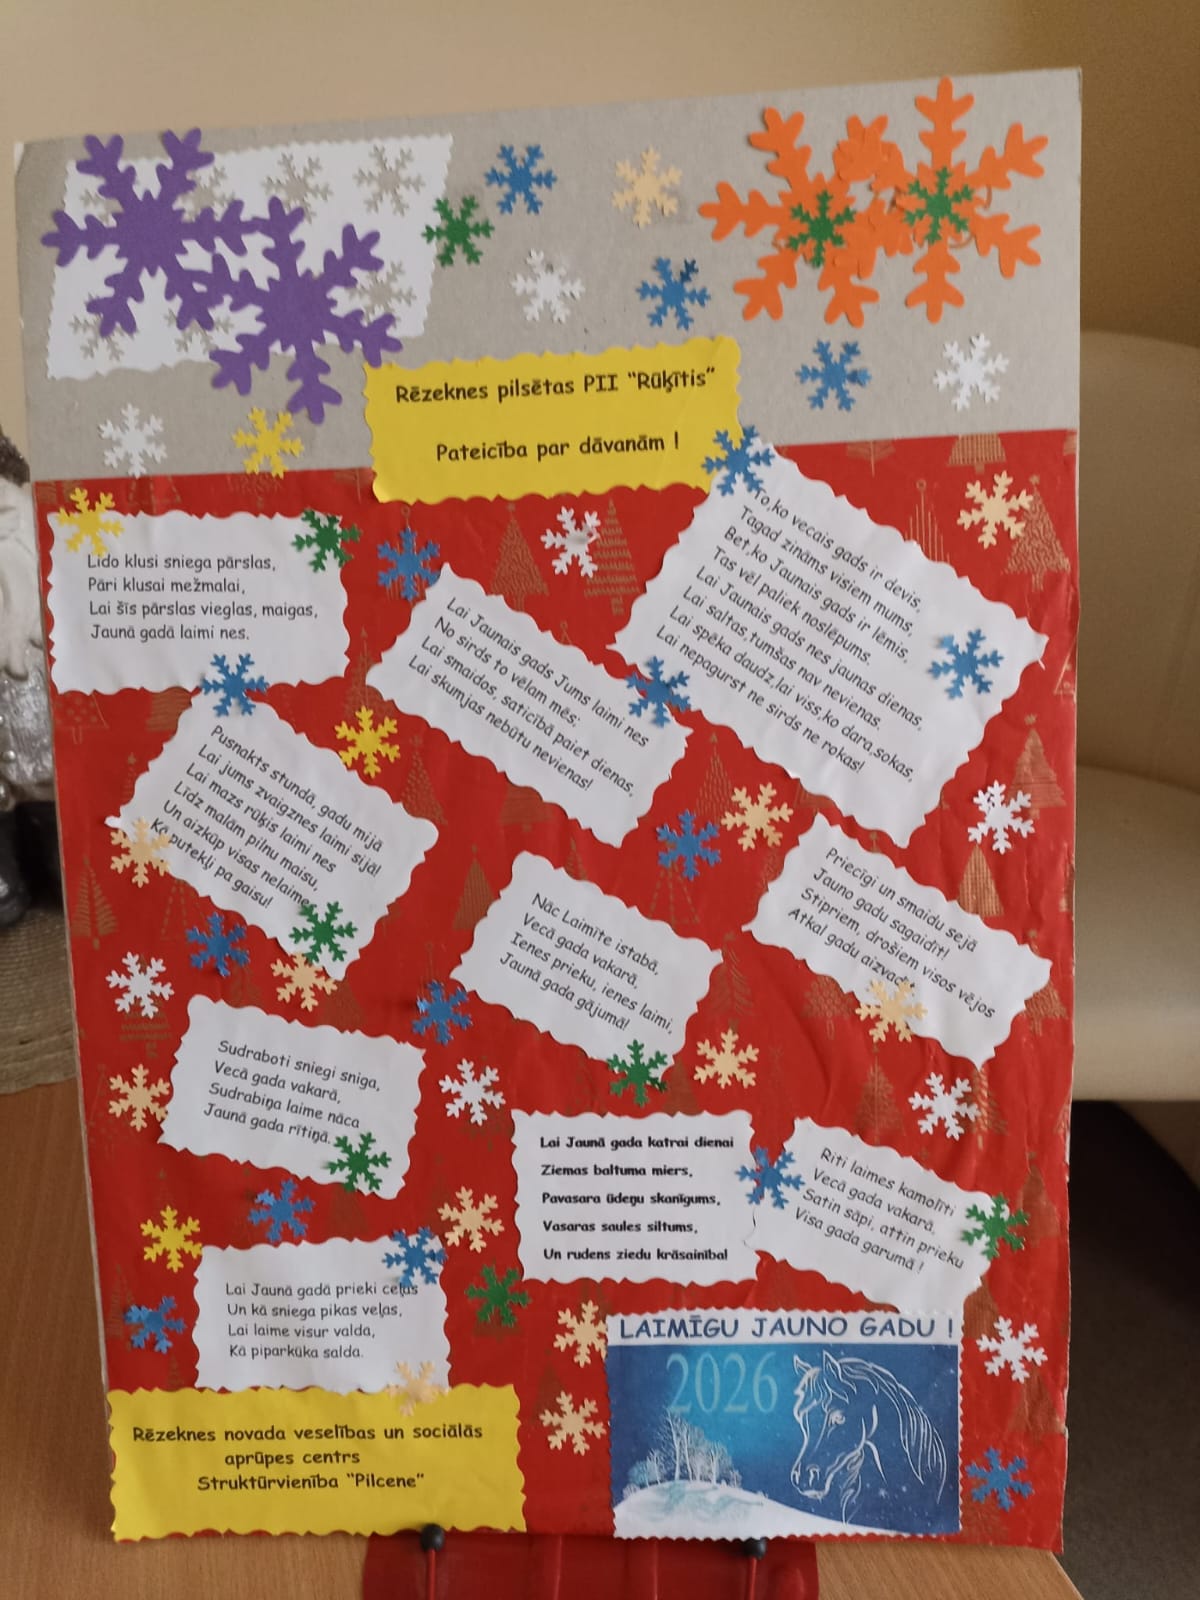 Rēzeknes pilsētas PII "Rūķītis"
Pateicība par dāvanām !
Lido klusi sniega pārslas,
Pāri klusai mežmalai,
Lai šīs pārslas vieglas, maigas,
Jaunā gadā laimi nes.
Lai Jaunais gads Jums laimi nes
No sirds to vēlam mēs;
Lai smaidos, saticībā paiet dienas,
Lai skumjas nebūtu nevienas!
To,ko vecais gads ir devis,
Tagad zināms visiem mums,
Bet,ko Jaunais gads ir lēmis,
Tas vēl paliek noslēpums.
Lai Jaunais gads nes jaunas dienas,
Lai saltas,tumšas nav nevienas.
Lai spēka daudz,lai viss,ko dara,sokas,
Lai nepagurst ne sirds ne rokas!
Pusnakts stundā, gadu mijā
Lai jums zvaigznes laimi sijā!
Lai mazs rūķis laimi nes
Līdz malām pilnu maisu,
Un aizkūp visas nelaimes
Kā putekļi pa gaisu!
Nāc Laimīte istabā,
Vecā gada vakarā,
Ienes prieku, ienes laimi,
Jaunā gada gājumā!
Priecīgi un smaidu sejā
Jauno gadu sagaidīt!
Stipriem, drošiem visos vējos
Atkal gadu aizvadīt.
Sudraboti sniegi sniga,
Vecā gada vakarā,
Sudrabiņa laime nāca
Jaunā gada rītiņā.
Lai Jaunā gada katrai dienai
Ziemas baltuma miers,
Pavasara ūdeņu skanīgums,
Vasaras saules siltums,
Un rudens ziedu krāsainība!
Riti laimes kamolīti
Vecā gada vakarā,
Satin sāpi, attin prieku
Visa gada garumā !
Lai Jaunā gadā prieki ceļas
Un kā sniega pikas veļas,
Lai laime visur valda,
Kā piparkūka salda.
LAIMĪGU JAUNO GADU !
2026
Rēzeknes novada veselības un sociālās
aprūpes centrs
Struktūrvienība "Pilcene"